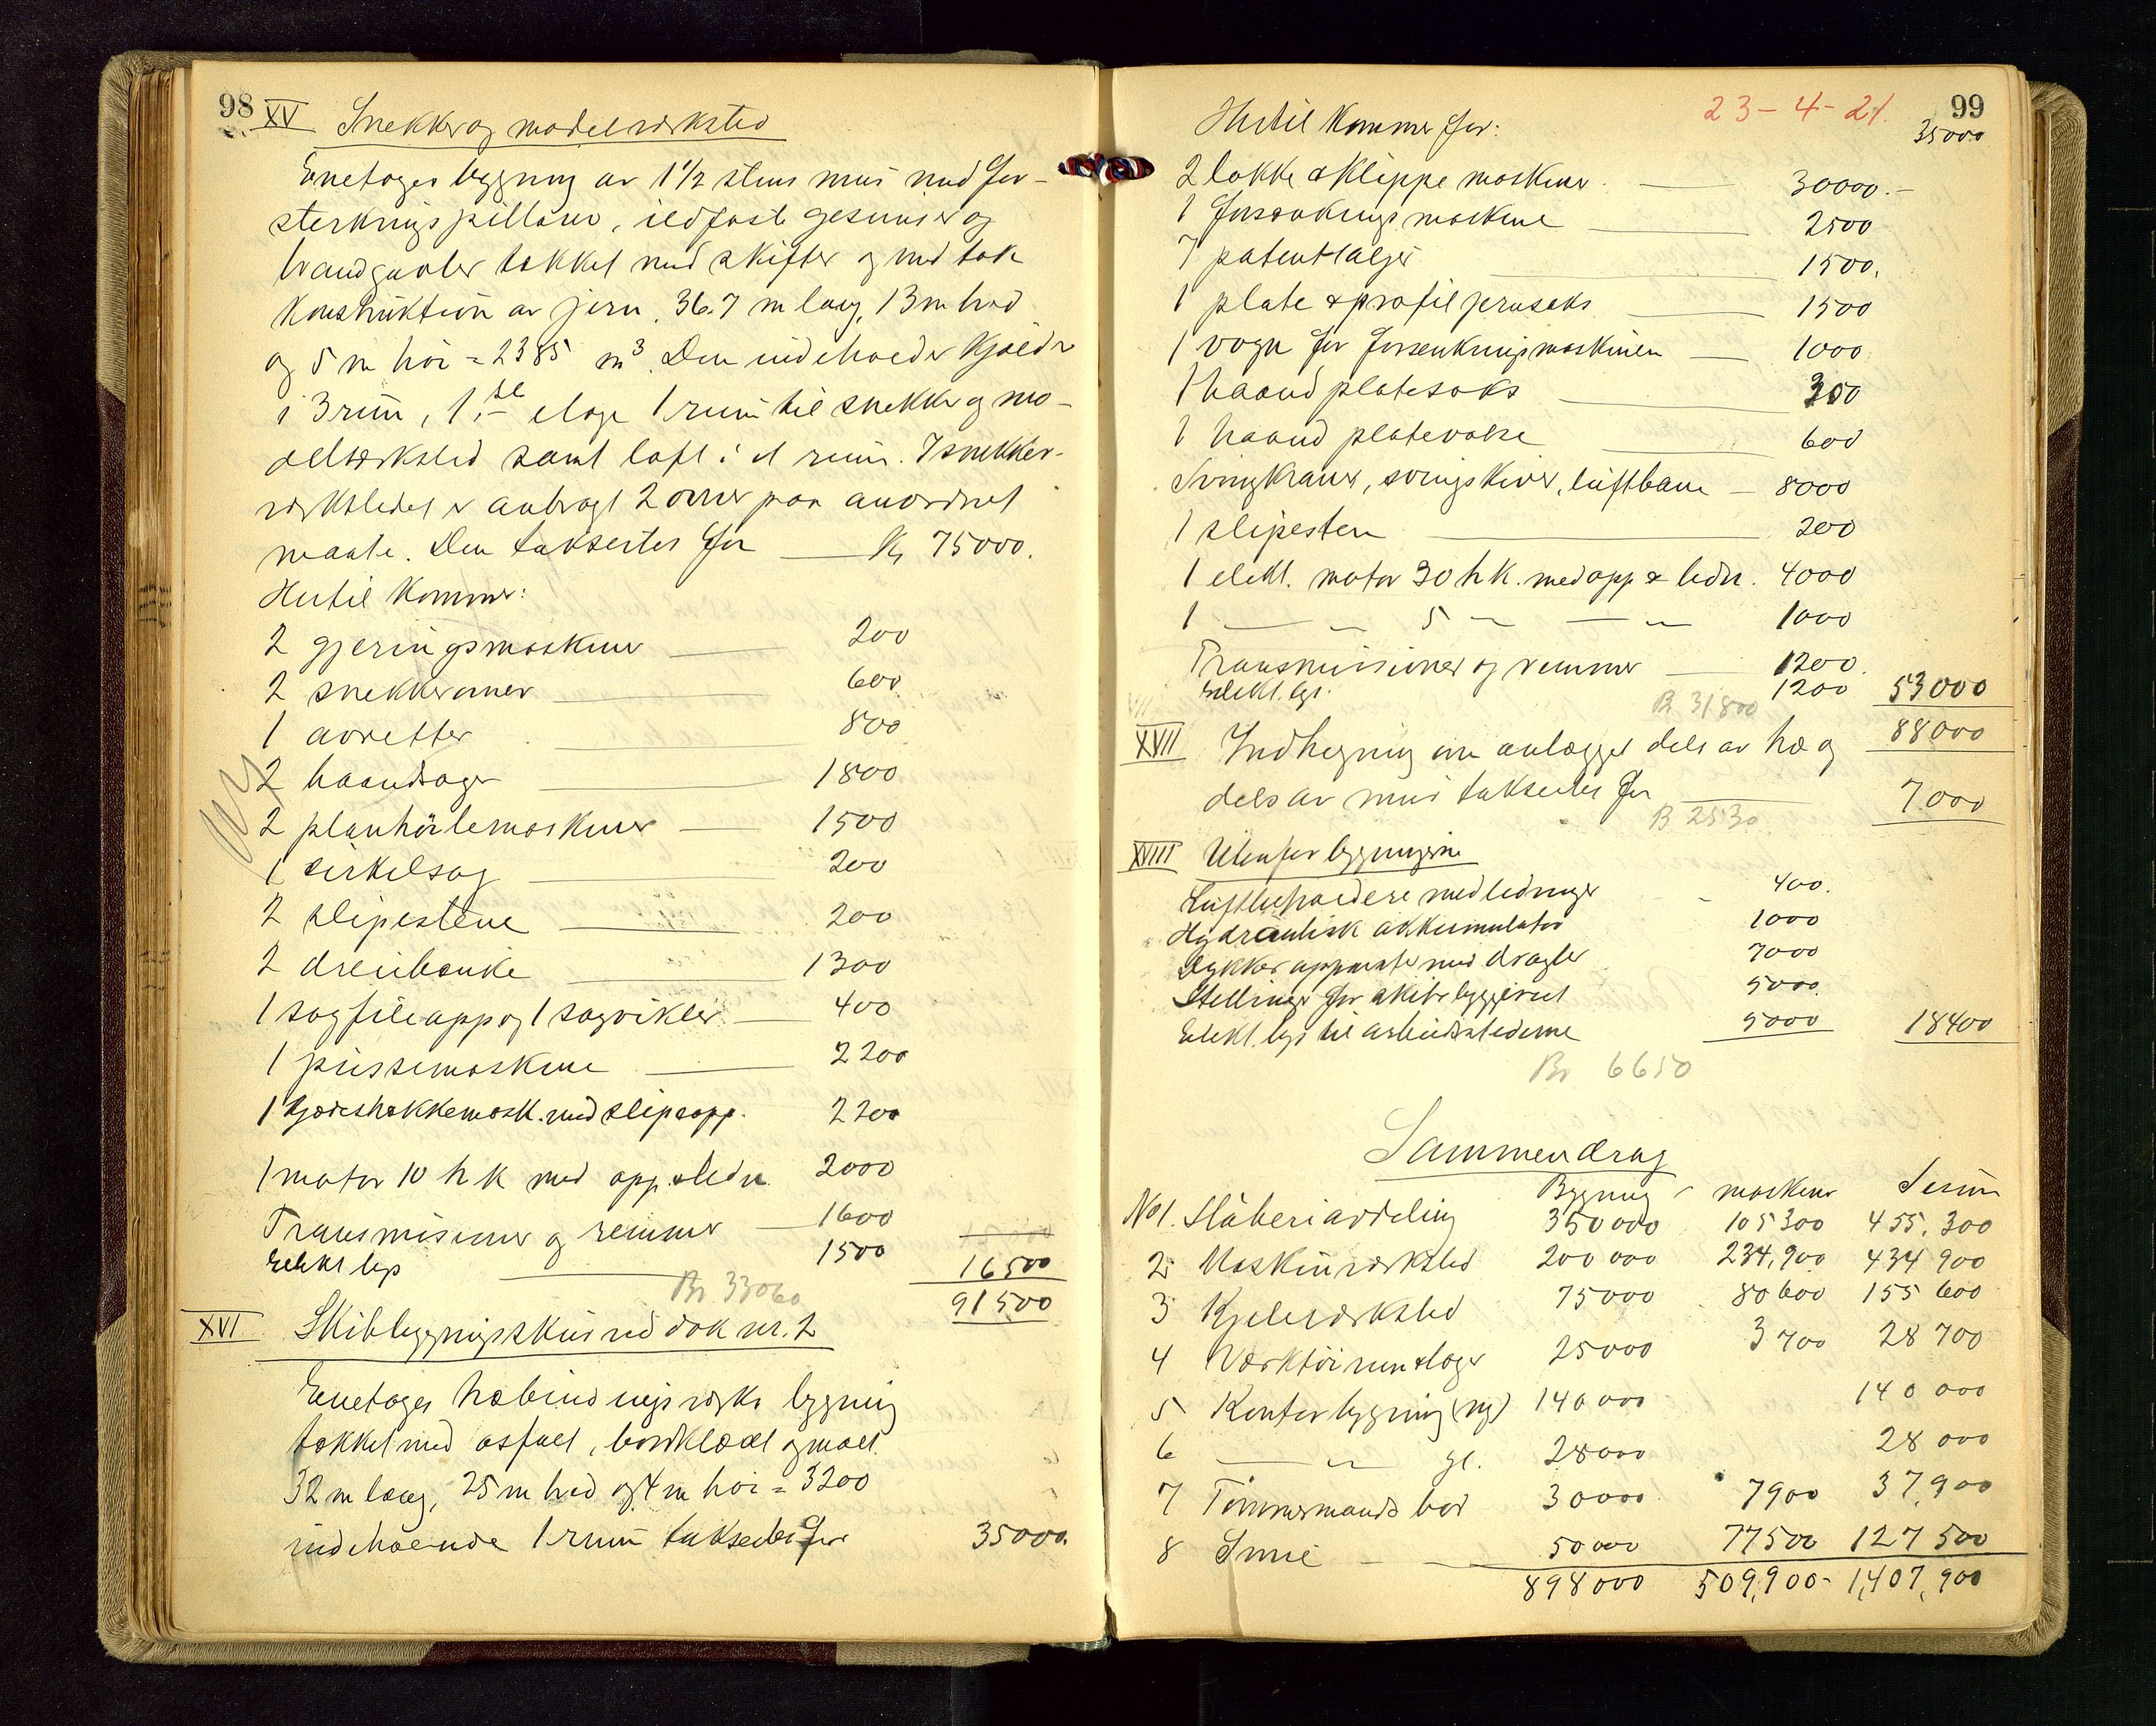 98
XV Snekker og modelverksted
Enetages bygning av 1½ stens mur med for-
sterkningspillarer, ildfaste gesimser og
brandgavler tækket med skifter og med tak
konstruktion av jern. 36.7 m lang, 13 m bred
og 5 m høi = 2385 m³. Den indeholder kjælder
i 3 rum, 1.ste etage 1 rum til snekker og mo-
delverksted samt loft i et rum. I snekker-
verkstedet er anbragt 2 ovner paa anordnet
maate. Den takseres for Kr 75000.
Hertil kommer:
2 gjeringsmaskiner 200
2 snekkerovner 600
1 avretter 800
2 baandsager 1800
2 planhøvlemaskiner 1500
1 cirkelsag 200
2 slipestene 200
2 dreiebænke 1300
1 sagfileapp og 1 sagvikler 400
1 pussemaskine 2200
1 Kjædestækkemask. med slipeapp. 2200
1 motor 10 h k med app & ledn 2000
Transmisioner og remmer 1600
Elekt lys 1500 16500
Br 33060 91500
XVI Skibbygningsskur ved dok nr. 2
Enetages halvbindingsverks bygning
tækket med asfalt, bordklædt og malt.
32 m lang, 25 m bred og 4 m høi = 3200
indeholdende 1 rum takseres for 35000.
23-4-21. 99
Hertil kommer for: 35000
2 lokke & klippe maskiner 30000.-
1 forsænknings maskine 2500
7 patenttaljer 1500.
1 plate & profiljernsaks 1500
1 vogn for forsenkningsmaskinen 1000
1 haand platesaks 300
1 haand platevalse 600
Svingkraner, svingskiver, luftbane 8000
1 slipesten 200
1 elekt. motor 30 h k. med app & ledn. 4000
1 — „ 5 „ — „ 1000
Transmissioner og remmer 1200.
Elekt. lys. 1200 53000
B 31800 88000
XVII Indhegning om anlægget dels av træ og
dels av mur takseres for 7000
B 2530
XVIII Utenfor bygningerne
Luftbeholdere med ledninger 400.
Hydraulisk akkumulator 1000
Dykker apparater med dragter 7000
Stellinger for skibsbyggeriet 5000.
Elekt. lys til arbeidsstederne 5000 18400
Br 6650
Sammendrag
Bygning maskiner Sum
No 1. Støberiavdeling 350000 105300 455.300
2 Maskinverksted 200 000 234,900 434 900
3 Kjeleverksted 75000 80600 155 600
4 Værktøirum & lager 25000 3700 28 700
5 Kontorbygning (ny) 140 000 140 000
6 — „ gl. 28000 28 000
7 Tømmermands bod 30000 7900 37,900
8 Smie 50000 77500 127 500
898000 509,900- 1,407,900